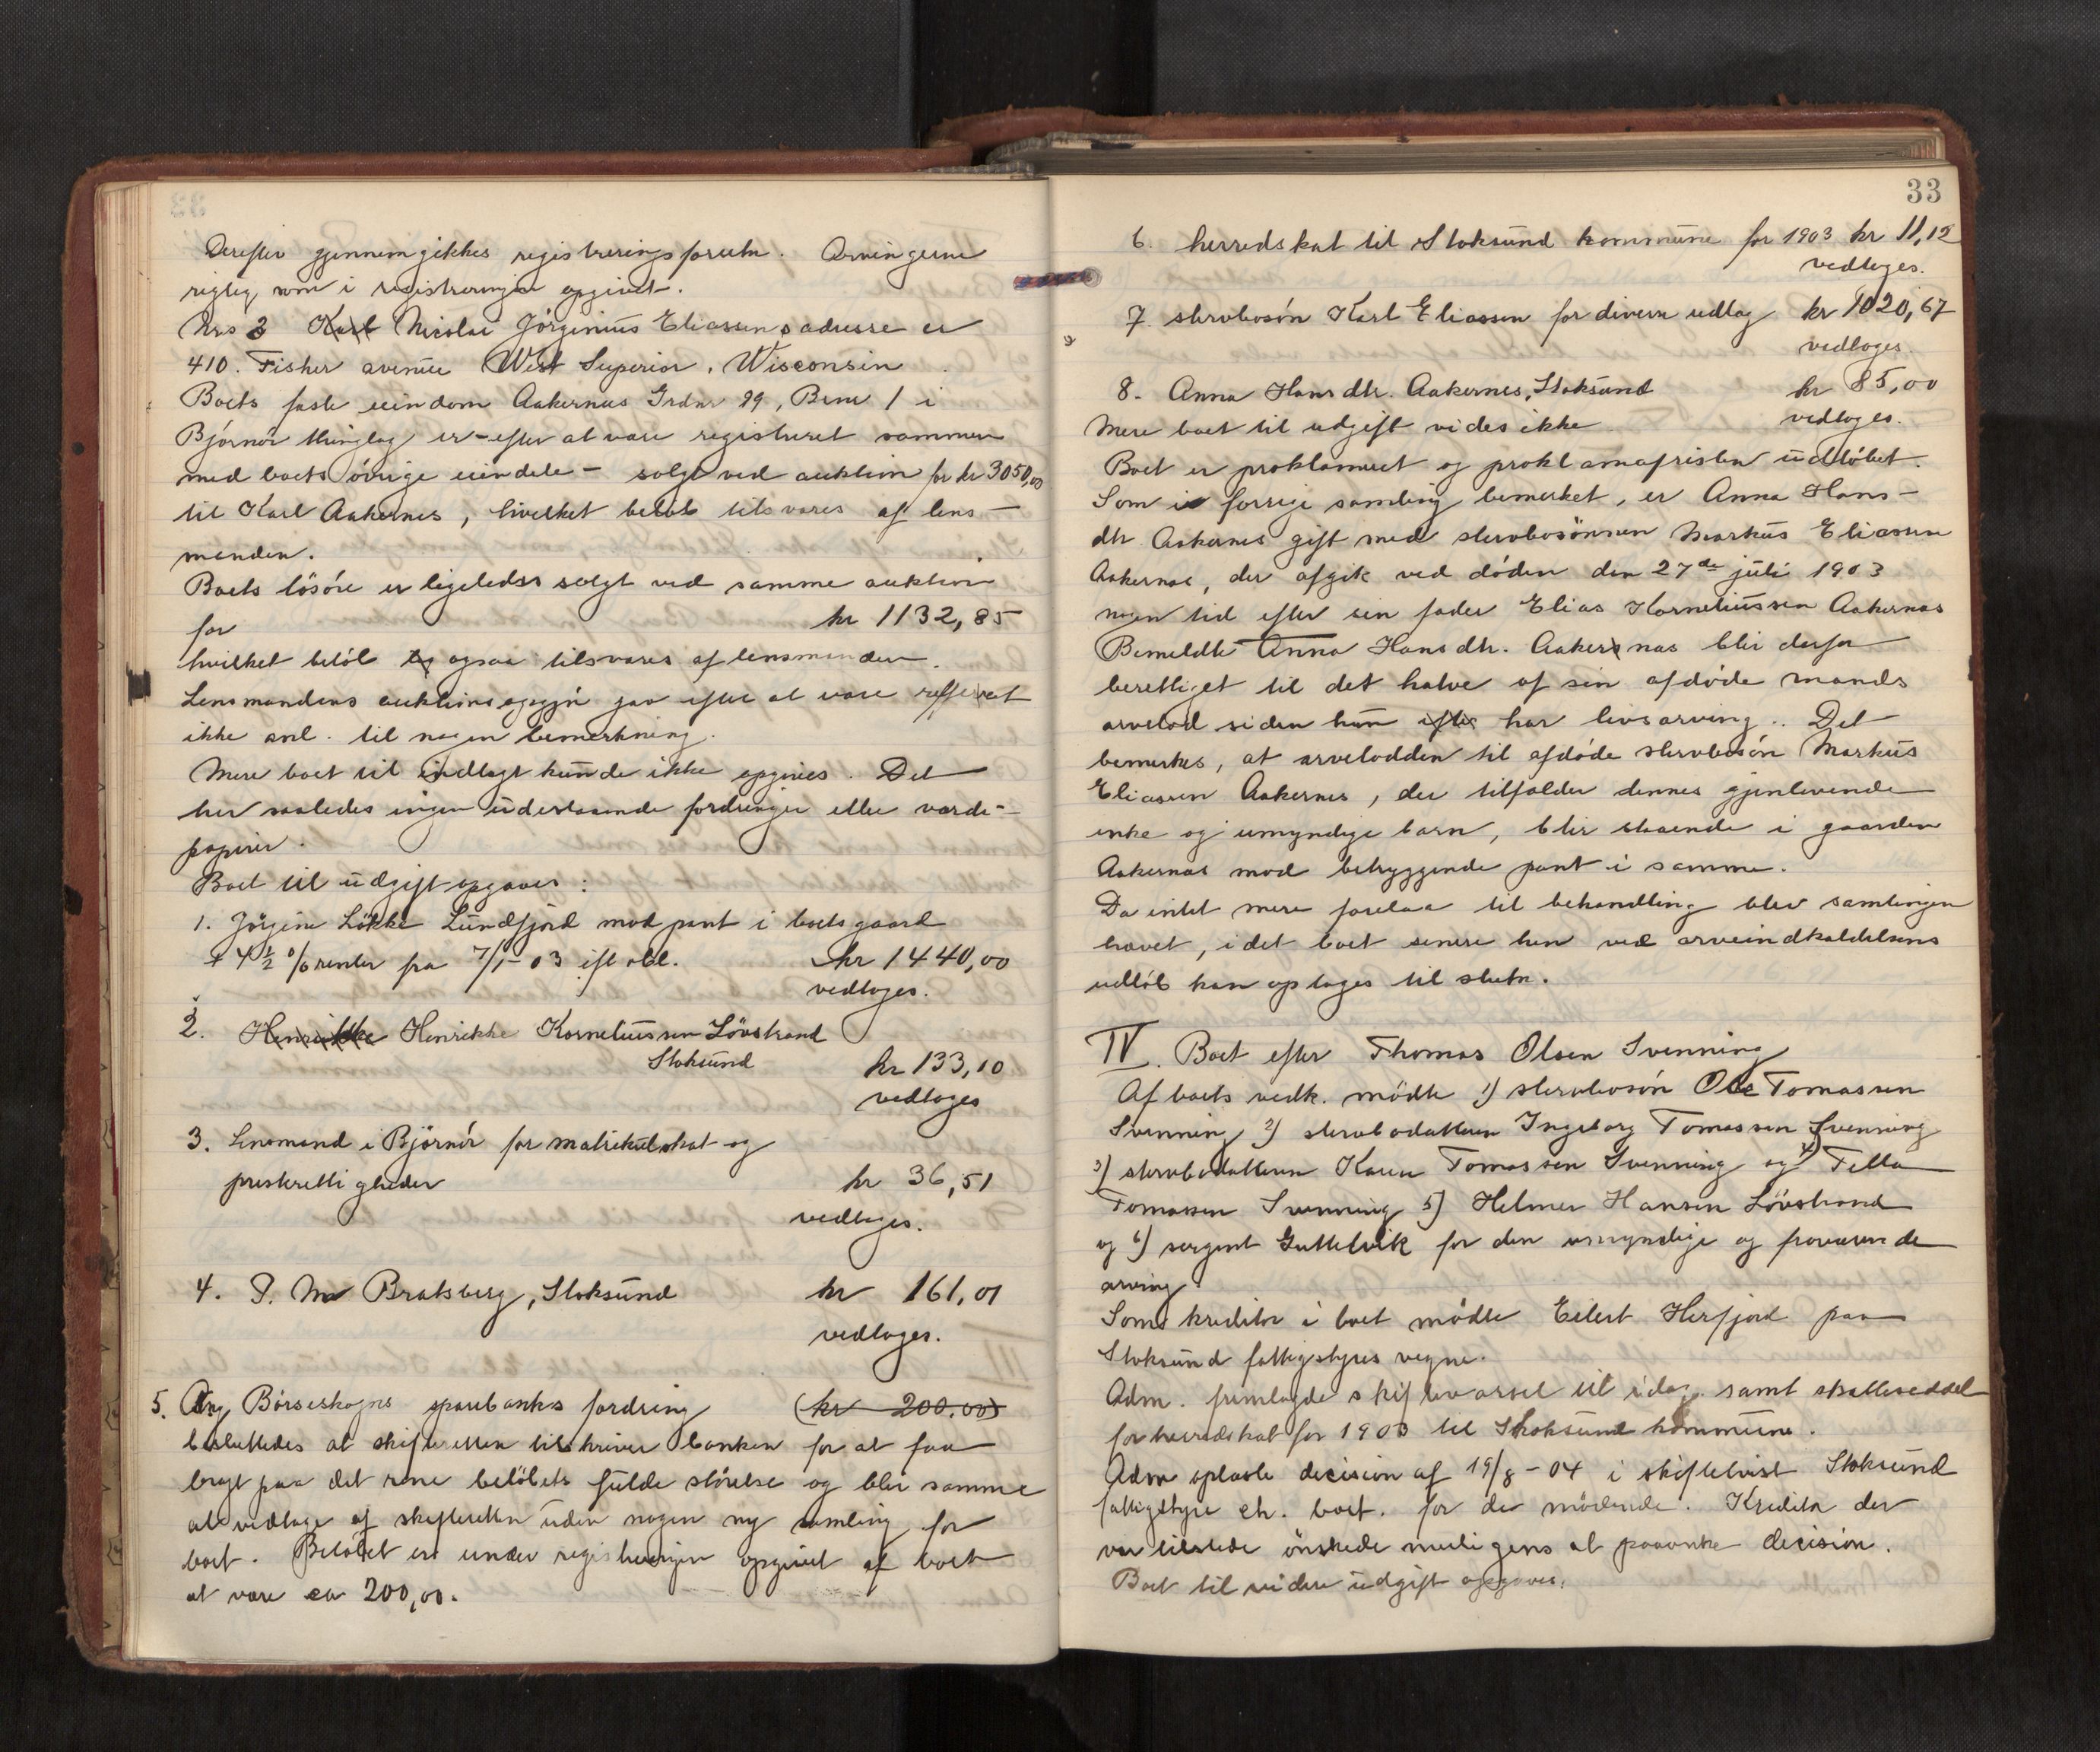 Derefter gjennemgikkes registreringsforretn. Arvingerne
rigtig som i registreringen opgivet.
Nrs 3 Karl Nicolai Jörginius Eliassens adresse er
410. Fisher avenue West Superior, Wisconsin
Boets faste eiendom Aakernes Grdnr 29, Brnr 1 i
Björnör thinglag er - efter at være registreret sammen
med boets övrige eiendele - solgt ved auktion for kr 3050,00
til Karl Aakernes, hvilket belöb tilsvares af lens-
manden.
Boets lösöre er ligeledes solgt ved samme auktion
for kr 1132,85
hvilket belöb og ogsaa tilsvares af lensmanden.
Lensmandens auktionsopgjör gav efter at være refereret
ikke anl. til nogen bemerkning.
Mere boet til indtægt kunde ikke opgives. Det
har saaledes ingen udestaaende fordringer eller værdi-
papirer.
Boet til udgift opgaves:
1. Jörgine Løkke Lundfjord mod pant i boets gaard
+ 4½ % renter fra 7/1-03 ifl obl. kr 1440,00
vedtoges.
2. Henrikke Henrikke Korneliussen Lövstrand
Stoksund
kr 133,10
vedtoges
3. Lensmand i Björnör for matrikulskat og
presterettigheder kr 36,51
vedtoges.
4. P. M Bratsberg, Stoksund kr 161,01
vedtoges.
5. Ang Börseskogns sparebanks fordring (kr 200.00)
besluttedes at skifteretten tilskriver banken for at faa
bragt paa det rene belöbets fulde störelse og blir samme
at vedtage af skifteretten uden nogen ny samling for
boet. Belöbet er under registreringen opgivet af boet
at være ca 200,00.
33
6. herredskat til Stoksund kommune for 1903 kr 11,12
vedtoges.
7. stervbosön Karl Eliassen for diverse udlæg kr 1020,67
vedtoges.
8. Anna Hansdtr. Aakernes, Stoksund kr 85,00
Mere boet til udgift vides ikke vedtoges.
Boet er proklameret og proklamafristen udlöbet.
Som i forrige samling bemerket, er Anna Hans-
dtr Aakernes gift med stervbosönnen Markus Eliassen
Aakernes, der afgik ved döden den 27de juli 1903
nogen tid efter sin fader Elias Korneliussen Aakernes
Bemeldte Anna Hansdtr. Aakernæs blir derfor
berettiget til det halve af sin afdöde mands
arvelod siden hun efter har livsarving.. Det
bemerkes, at arvelodden til afdöde stervbosön Markus
Eliassen Aakernes, der tilfalder dennes gjenlevende
enke og umyndige barn, blir staaende i gaarden
Aakernæs mod betryggende pant i samme.
Da intet mere forelaa til behandling blev samlingen
hævet, idet boet senere hen ved arveindkaldelsens
udlöb kan optages til slutn.
IV. Boet efter Thomas Olsen Svenning
Af boets vedk. mödte 1) stervbosön Ole Tomassen
Svenning 2) stervbodatteren Ingeborg Tomassen Svenning
3) stervbodatteren Karen Tomassen Svenning og 4) Tella
Tomassen Svenning 5) Helmer Hansen Lövstrand
og 6) sergent Guttelvik for den umyndige og fraværende
arving.
Som kreditor i boet mödte Eilert Herfjord paa
Stoksund fattigstyres vegne.
Adm. fremlagde skiftevarsel til idag samt skatteseddel
for herredskat for 1903 til Stoksund kommune.
Adm oplæste decision af 19/8-04 i skiftetvist Stoksund
fattigstyre ctr. boet. for de mödende. Kreditor der
var tilstede önskede muligens at paaanke decision.
Boet til videre udgift opgaves: